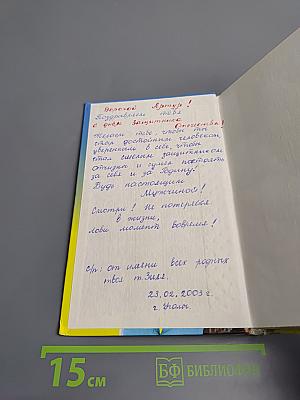 Дорогой Артур!
Поздравляем тебя
с днём Защитника
Отечества!
Желаем тебе, чтобы ты
стал достойным человеком,
уверенным в себе, чтобы
стал смелым защитником
отчизны и сумел постоять
за себя и за Родину!
Будь настоящим
Мужчиной!
Смотри! Не потеряйся
в жизни,
лови момент вовремя!
с/п: от имени всех родных
твоя т. Зиля.
23.02.2003 г.
г.
15 см
БФ БИБЛИОФОН